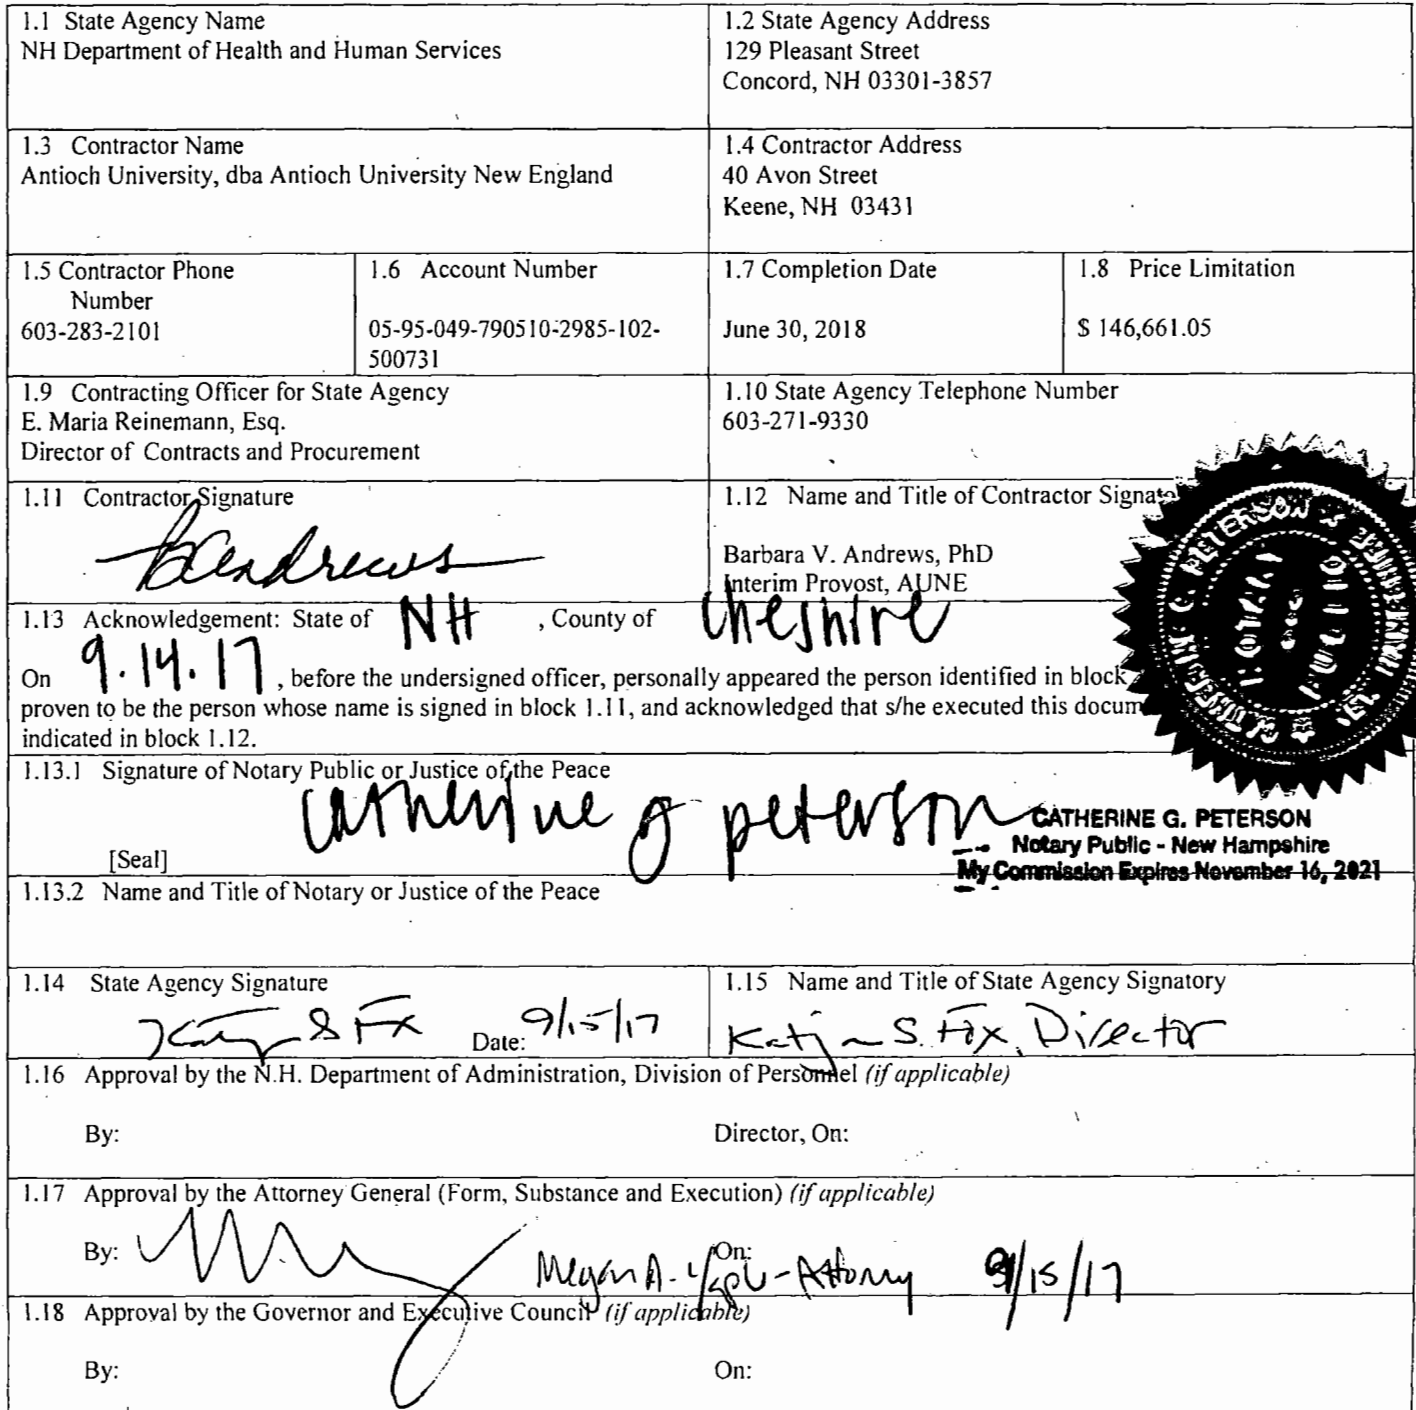 1.1 State Agency Name
NH Department of Health and Human Services
1.2 State Agency Address
129 Pleasant Street
Concord, NH 03301-3857
1.3 Contractor Name
Antioch University, dba Antioch University New England
1.4 Contractor Address
40 Avon Street
Keene, NH 03431
1.5 Contractor Phone
Number
603-283-2101
1.6 Account Number
05-95-049-790510-2985-102-
500731
1.7 Completion Date
June 30, 2018
1.8 Price Limitation
$ 146,661.05
1.9 Contracting Officer for State Agency
E. Maria Reinemann, Esq.
Director of Contracts and Procurement
1.10 State Agency Telephone Number
603-271-9330
1.11 Contractor Signature
BAndrews
1.12 Name and Title of Contractor
Barbara V. Andrews, PhD
Interim Provost, AUNE
1.13 Acknowledgement: State of NH , County of Cheshire
On 9.14.17 , before the undersigned officer, personally appeared the person identified in block
proven to be the person whose name is signed in block 1.11, and acknowledged that s/he executed this
indicated in block 1.12.
1.13.1 Signature of Notary Public or Justice of the Peace
Catherine G Peterson
[Seal]
CATHERINE G. PETERSON
Notary Public - New Hampshire
My Commission Expires November 16, 2021
G. PETERSON
NOTARY
PUBLIC
1.13.2 Name and Title of Notary or Justice of the Peace
1.14 State Agency Signature
Katja S Fox Date: 9/15/17
1.15 Name and Title of State Agency Signatory
Katja S. Fox, Director
1.16 Approval by the N.H. Department of Administration, Division of Personnel (if applicable)
By: Director, On:
1.17 Approval by the Attorney General (Form, Substance and Execution) (if applicable)
By: On:
Megan A. - Attorney 9/15/17
1.18 Approval by the Governor and Executive Council (if applicable)
By: On: